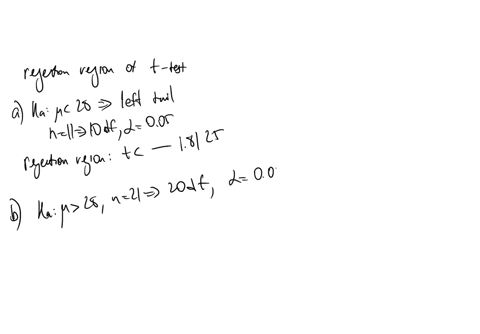 rejection region of t-test
a) Ha: μ< 28 ⇒ left tail
n=11⇒10df, α=0.05
rejection region: t< — 1.8125
b) Ha: μ> 28, n=21⇒ 20df, α= 0.0